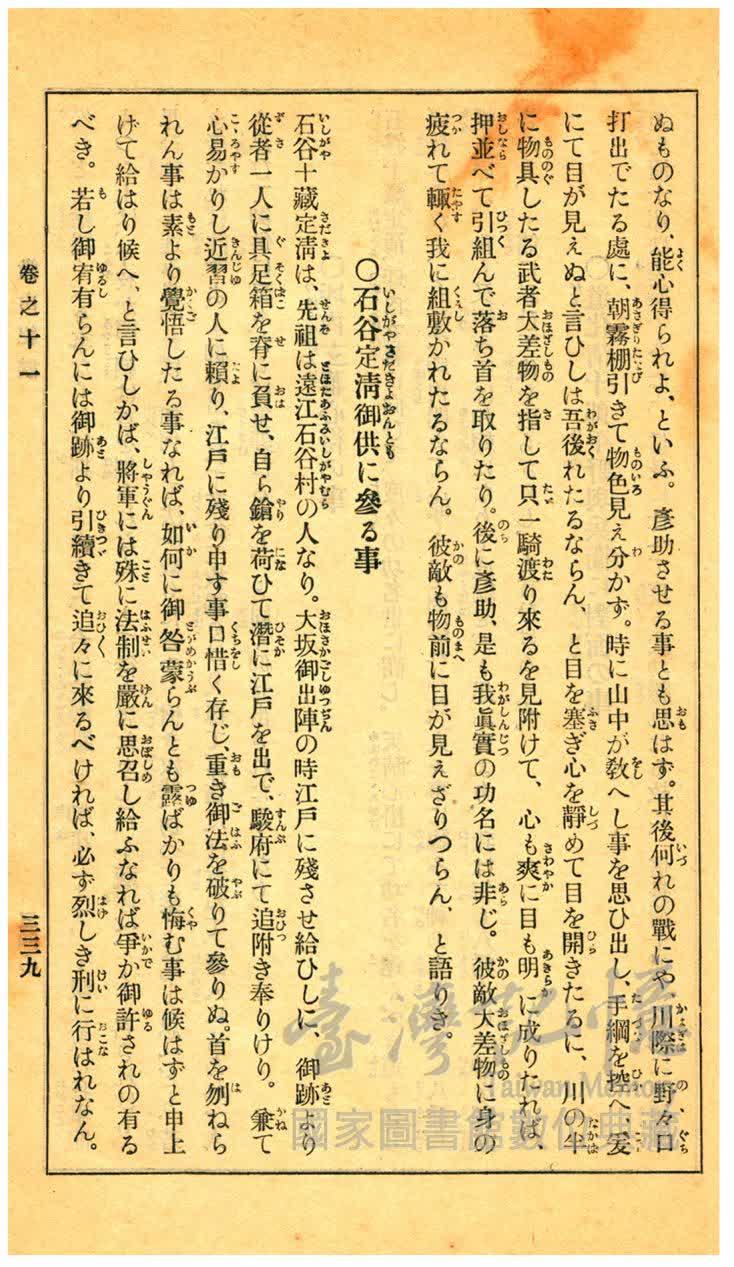 ぬものなり、能心得られよ、といふ。彦助させる事とも思はず。其後何れの戰にや、川際に野々口
打出でたる處に、朝霧棚引きて物色見え分かず。時に山中が敎へし事を思ひ出し、手綱を控へ爰
にて目が見えぬと言ひしは吾後れたるならん、と目を塞ぎ心を靜めて目を開きたるに、川の半
に物具したる武者大差物を指して只一騎渡り來るを見附けて、心も爽に目も明に成りたれば、
押並べて引組んで落ち首を取りたり。後に彦助、是も我眞實の功名には非じ。彼敵大差物に身の
疲れて輙く我に組敷かれたるならん。彼敵も物前に目が見えざりつらん、と語りき。
〇石谷定淸御供に參る事
石谷十藏定淸は、先祖は遠江石谷村の人なり。大坂御出陣の時江戸に殘させ給ひしに、御跡より
從者一人に具足箱を脊に負せ、自ら鎗を荷ひて潛に江戸を出で、駿府にて追附き奉りけり。兼て
心易かりし近習の人に賴り、江戸に殘り申す事口惜く存じ、重き御法を破りて參りぬ。首を刎ねら
れん事は素より覺悟したる事なれば、如何に御咎蒙らんとも露ばかりも悔む事は候はずと申上
げて給はり候へ、と言ひしかば、將軍には殊に法制を嚴に思召し給ふなれば爭か御許されの有る
べき。若し御宥有らんには御跡より引續きて追々に來るべければ、必ず烈しき刑に行はれなん。
卷之十一
三三九
臺灣記憶
Taiwan Memory
國家圖書館數位典藏